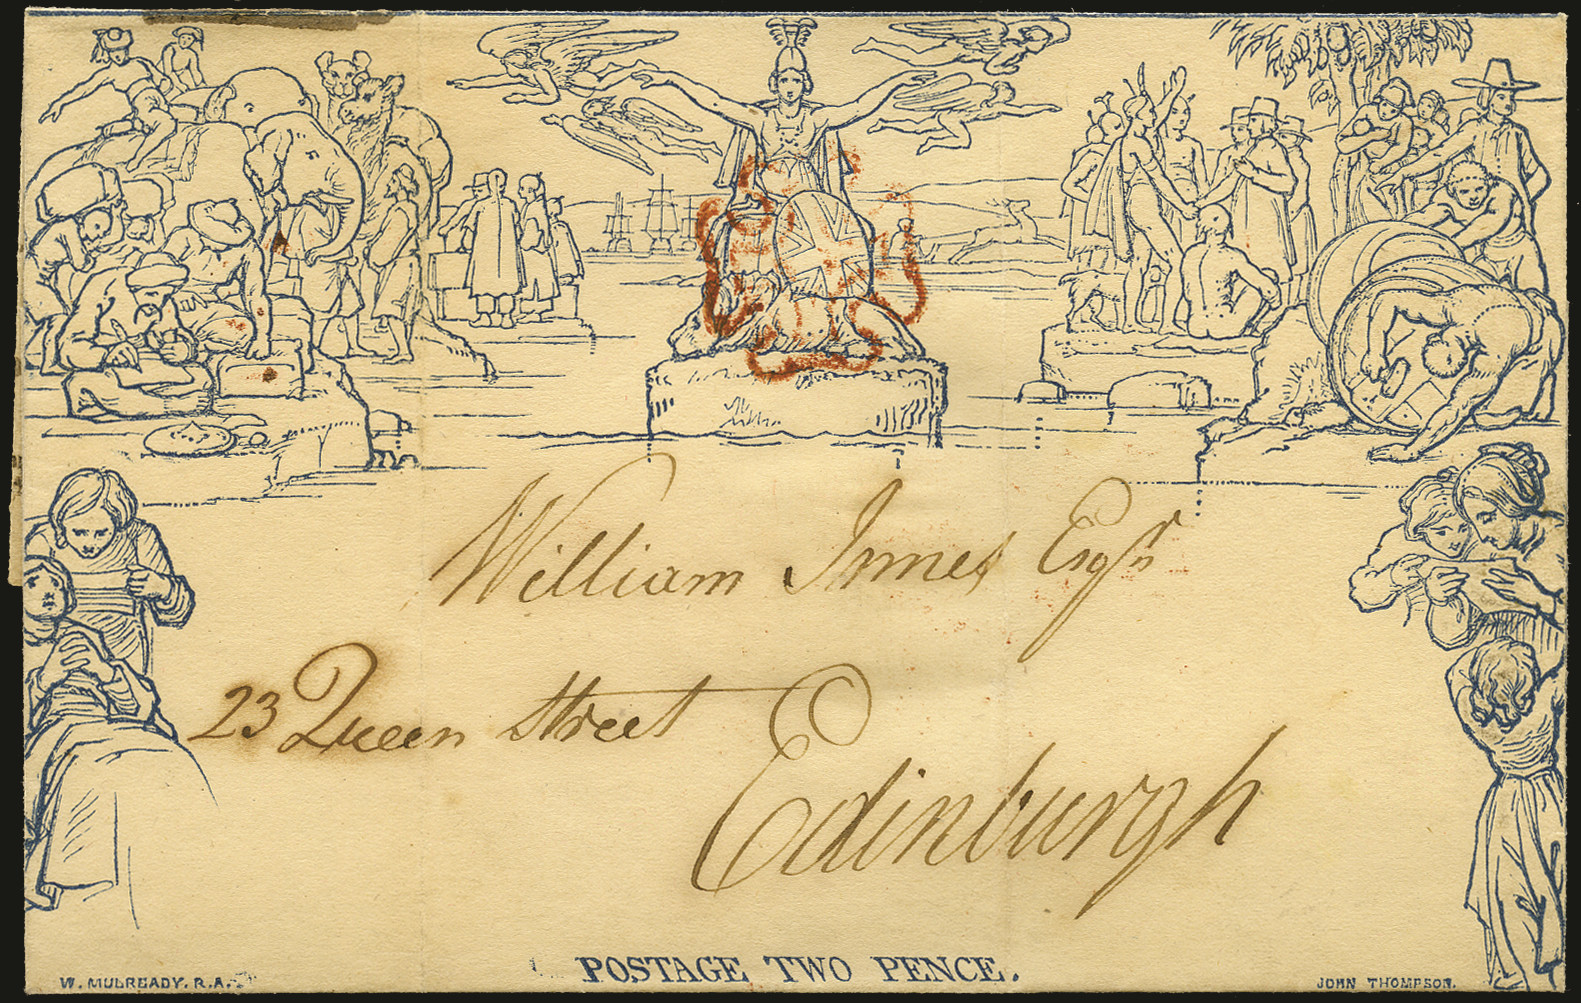 William Innes Esqr
23 Queen Street
Edinburgh
POSTAGE TWO PENCE.
W. MULREADY. R.A.
JOHN THOMPSON.